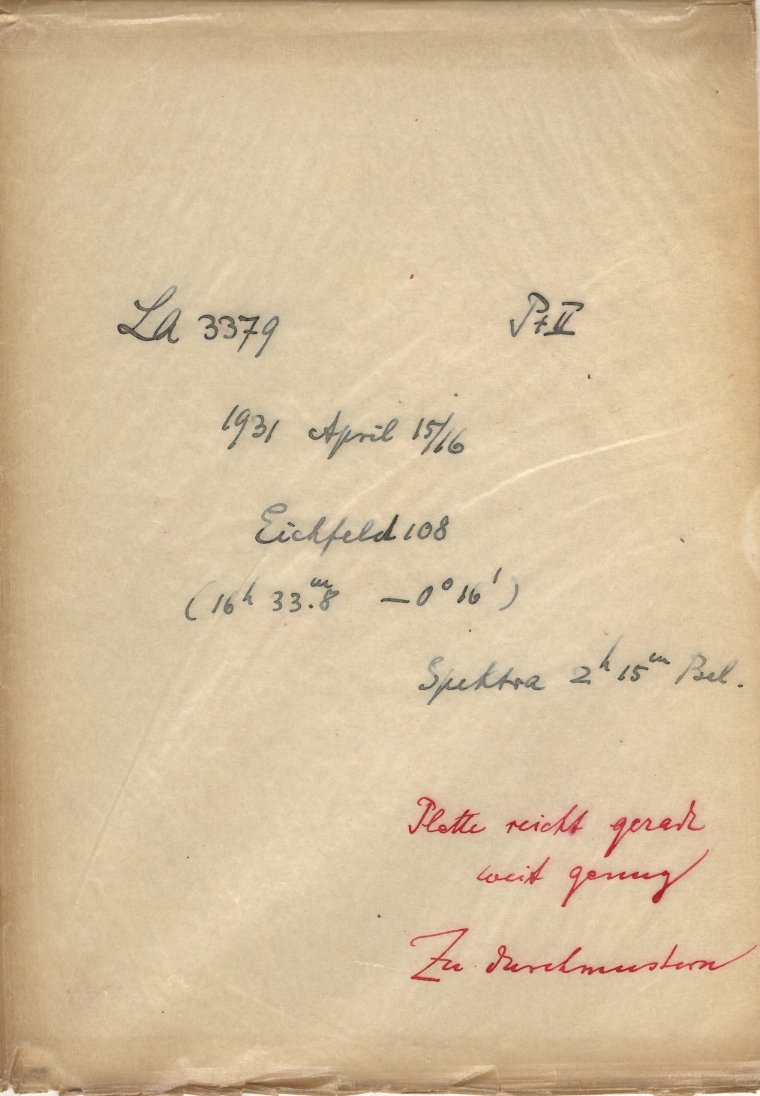 La 3379 P+II
1931 April 15/16
Eichfeld 108
(16h 33m.8 —0° 16')
Spektra 2h 15m Bel.
Platte reicht gerade
weit genug
Zu durchmustern